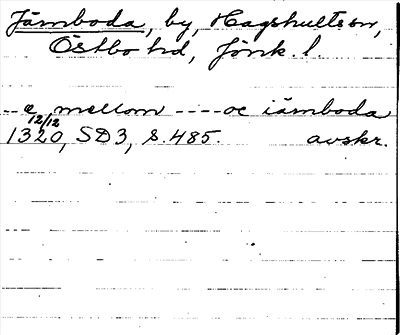 Jämboda, by, Hagshults sn,
Östbo hd, Jönk. l.
-- e mellom ---- oc iämboda
12/12
1320, SD3, s. 485. avskr.